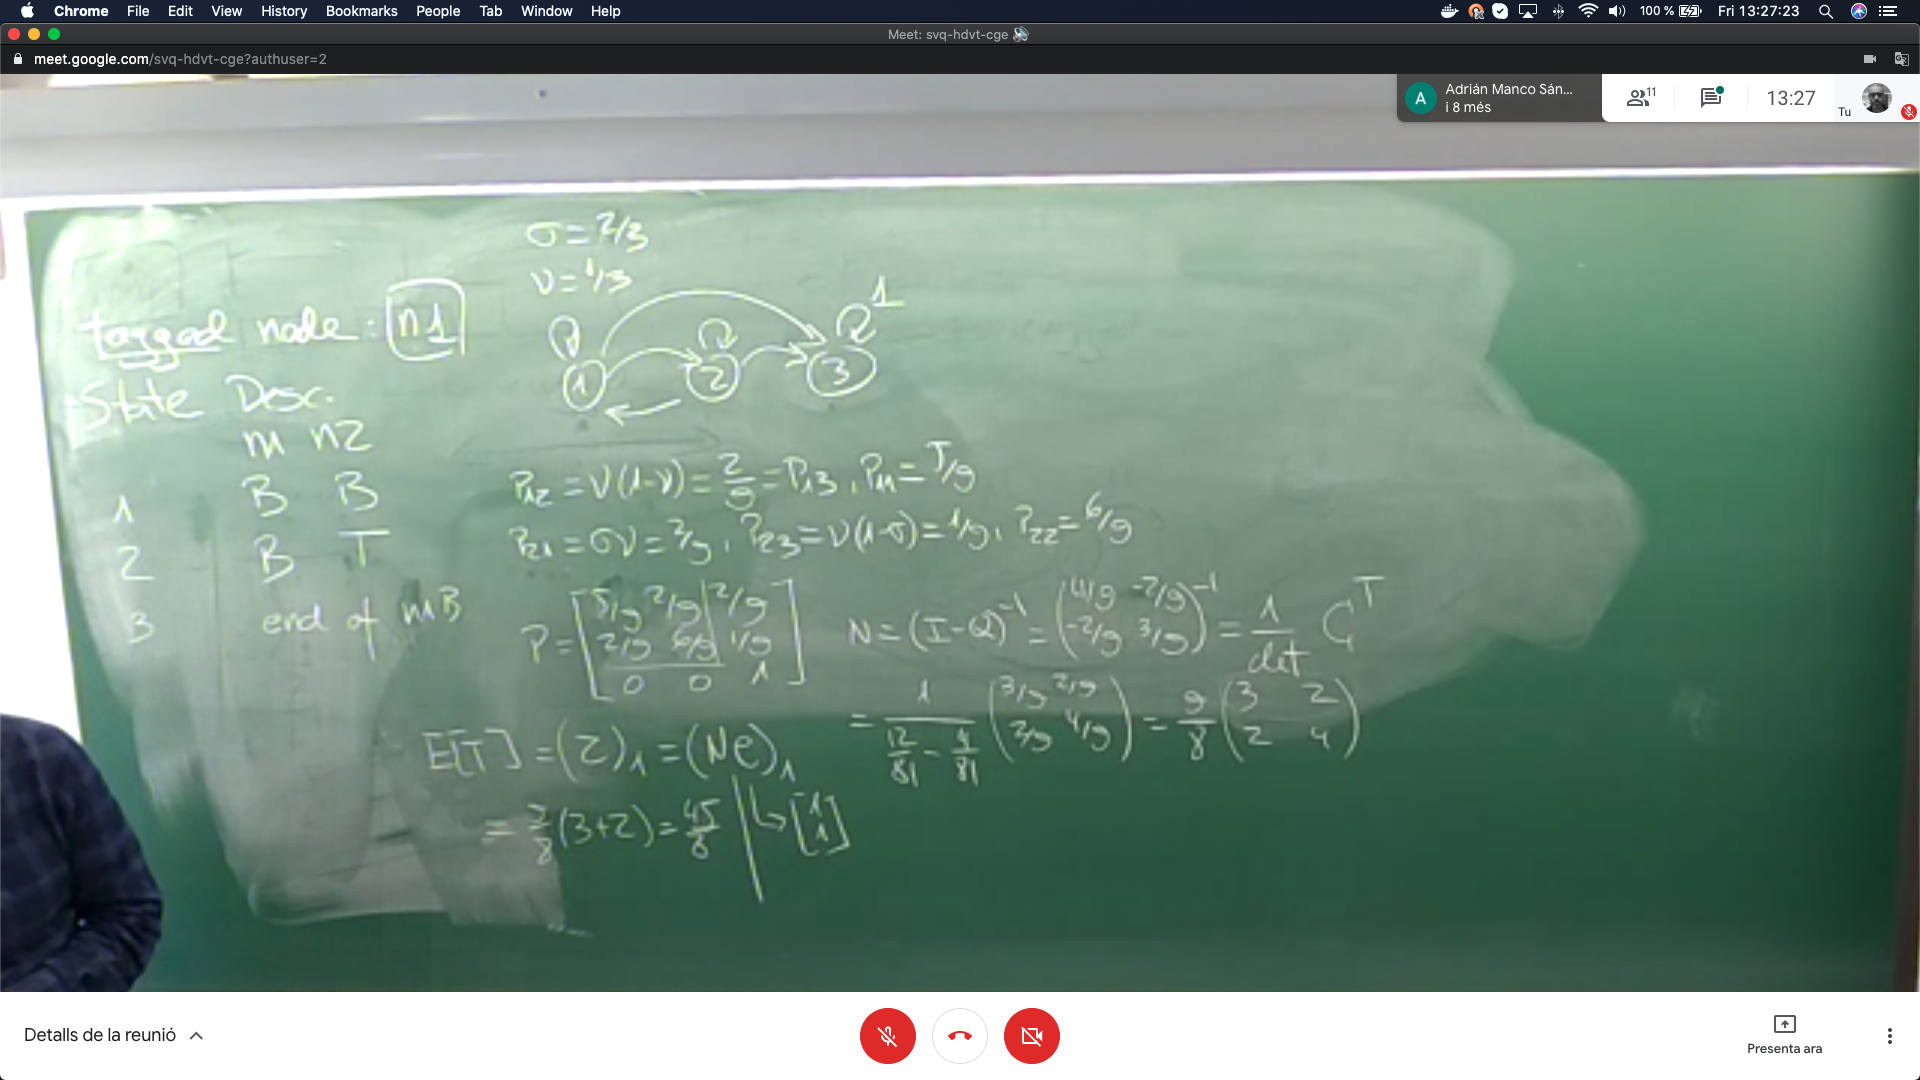 Chrome File Edit View History Bookmarks People Tab Window Help 100 % Fri 13:27:23
Meet: svq-hdvt-cge
meet.google.com/svq-hdvt-cge?authuser=2
A Adrián Manco Sán...
i 8 més
11
13:27
Tu
σ = 2/3
ν = 1/3
tagged node: n1
1 2 3 1
State Desc.
n1 n2
1 B B
2 B T
3 end of n1 B
P12 = ν(1-ν) = 2/9 = P13, P11 = 5/9
P21 = σν = 2/9, P23 = ν(1-σ) = 1/9, P22 = 6/9
P = [5/9 2/9 | 2/9
2/9 6/9 | 1/9
0 0 1]
N = (I-Q)^-1 = (4/9 -2/9
-2/9 3/9)^-1 = 1/det C^T
= 1/(12/81 - 4/81) (3/9 2/9
2/9 4/9) = 9/8 (3 2
2 4)
E[T] = (z)1 = (Ne)1
= 9/8 (3+2) = 45/8 | ↳ [1
1]
Detalls de la reunió
Presenta ara